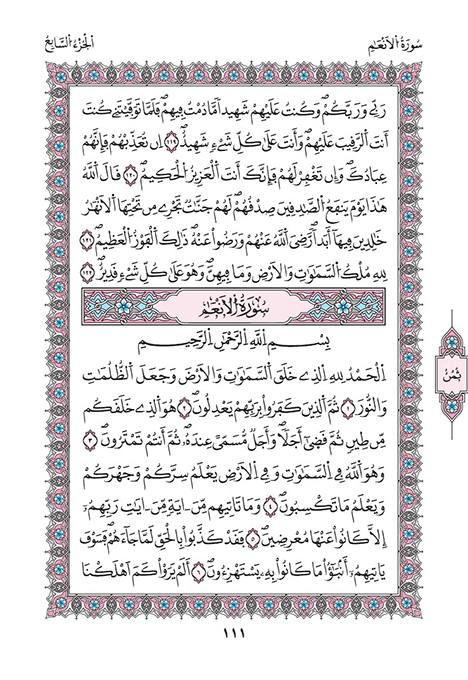 سُورَةُ الْاَنْعَامِ
الْجُزْءُ السَّابِعُ
رَبِّے وَرَبَّكُمْ وَكُنتُ عَلَيْهِمْ شَهِيدًا مَّا دُمْتُ فِيهِمْ فَلَمَّا تَوَفَّيْتَنِے كُنتَ
أَنتَ اَلرَّقِيبَ عَلَيْهِمْ وَأَنتَ عَلَىٰ كُلِّ شَےْءٍ شَهِيدٌ ١١٩ اِن تُعَذِّبْهُمْ فَإِنَّهُمْ
عِبَادُكَ وَإِن تَغْفِرْ لَهُمْ فَإِنَّكَ أَنتَ اَلْعَزِيزُ اُلْحَكِيمُ ١٢٠ قَالَ اَللَّهُ
هَٰذَا يَوْمَ يَنفَعُ اُلصَّٰدِقِينَ صِدْقُهُمْ لَهُمْ جَنَّٰتٌ تَجْرِے مِن تَحْتِهَا اَلَانْهَٰرُ
خَٰلِدِينَ فِيهَا أَبَدًا رَّضِيَ اَللَّهُ عَنْهُمْ وَرَضُواْ عَنْهُ ذَٰلِكَ اَلْفَوْزُ اُلْعَظِيمُ ١٢١
لِلهِ مُلْكُ اُلسَّمَٰوَٰتِ وَالَارْضِ وَمَا فِيهِنَّ وَهُوَ عَلَىٰ كُلِّ شَےْءٍ قَدِيرٌ ١٢٢
سُورَةُ الْاَنْعَامِ
بِسْمِ اِللَّهِ اِلرَّحْمَٰنِ اِلرَّحِيمِ
اَلْحَمْدُ لِلهِ اِلذِے خَلَقَ اَلسَّمَٰوَٰتِ وَالَارْضَ وَجَعَلَ اَلظُّلُمَٰتِ
وَالنُّورَ ١ ثُمَّ اَلذِينَ كَفَرُواْ بِرَبِّهِمْ يَعْدِلُونَ ٢ هُوَ اَلذِے خَلَقَكُم
مِّن طِينٍ ثُمَّ قَضَىٰ أَجَلًا وَأَجَلٌ مُّسَمًّى عِندَهُ ثُمَّ أَنتُمْ تَمْتَرُونَ ٣
وَهُوَ اَللَّهُ فِے اِلسَّمَٰوَٰتِ وَفِے اِلَارْضِ يَعْلَمُ سِرَّكُمْ وَجَهْرَكُمْ
وَيَعْلَمُ مَا تَكْسِبُونَ ٤ وَمَا تَاتِيهِم مِّنَ اٰيَةٍ مِّنَ اٰيَٰتِ رَبِّهِمُۥ
إِلَّا كَانُواْ عَنْهَا مُعْرِضِينَ ٥ فَقَدْ كَذَّبُواْ بِالْحَقِّ لَمَّا جَآءَهُمْ فَسَوْفَ
يَاتِيهِمُۥ أَنۢبَٰٓؤُاْ مَا كَانُواْ بِهِۦ يَسْتَهْزِءُونَ ٦ أَلَمْ يَرَوْاْ كَمَ اَهْلَكْنَا
ثُمُنُ
١١١